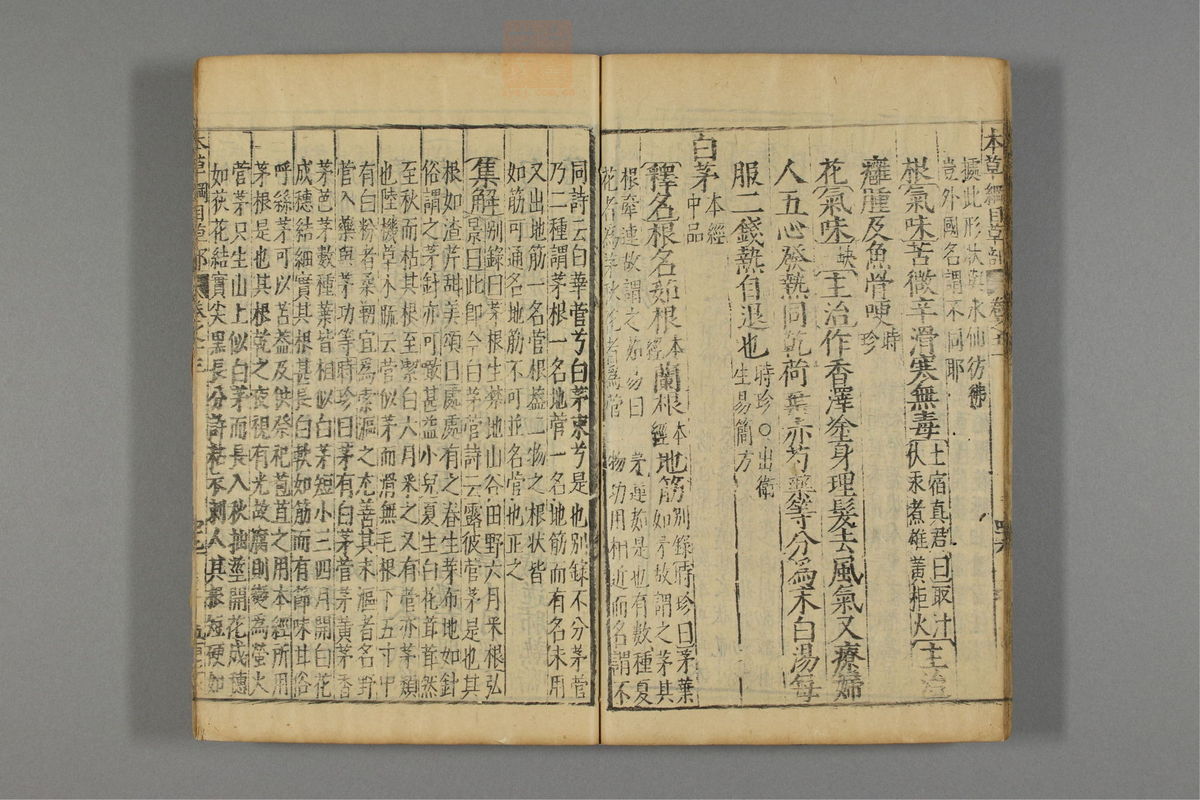 本草綱目草部 卷之十三
據此形狀與水仙彷彿
豈外國名謂不同耶
根氣味苦微辛滑寒無毒土宿真君曰取汁伏汞煮雄黃拒火主治
癰腫及魚骨哽時珍
花氣味缺主治作香澤塗身理髮去風氣又療婦
人五心發熱同乾荷葉赤芍藥等分為末白湯每
服二錢熱自退也時珍○出衛生易簡方
白茅本經中品
釋名根名茹根本經蘭根本經地筋別錄時珍曰茅葉如矛故謂之茅其
根牽連故謂之茹易曰拔茅連茹是也有數種夏
花者為茅秋花者為菅二物功用相近而名謂不
同詩云白華菅兮白茅束兮是也別錄不分茅菅
乃二種謂茅根一名地菅一名地筋而有名未用
又出地筋一名菅根蓋二物之根狀皆
如筋可通名地筋不可並名菅也正之
集解別錄曰茅根生楚地山谷田野六月采根弘
景曰此即今白茅菅詩云露彼菅茅是也其
根如渣芹甜美頌曰處處有之春生芽布地如針
俗謂之茅針亦可噉甚益小兒夏生白花茸茸然
至秋而枯其根至潔白六月采之又有菅亦茅類
也陸機草木疏云菅似茅而滑無毛根下五寸中
有白粉者柔韌宜為索漚之尤善其未漚者名野
菅入藥與茅功等時珍曰茅有白茅菅茅黃茅香
茅芭茅數種葉皆相似白茅短小三四月開白花
成穗結細實其根甚長白軟如筋而有節味甘俗
呼絲茅可以苫蓋及供祭祀苞苴之用本經所用
茅根是也其根乾之夜視有光故腐則變為螢火
菅茅只生山上似白茅而長入秋抽莖開花成穗
如荻花結實尖黑長分許粘衣刺人其根短硬如
本草綱目草部